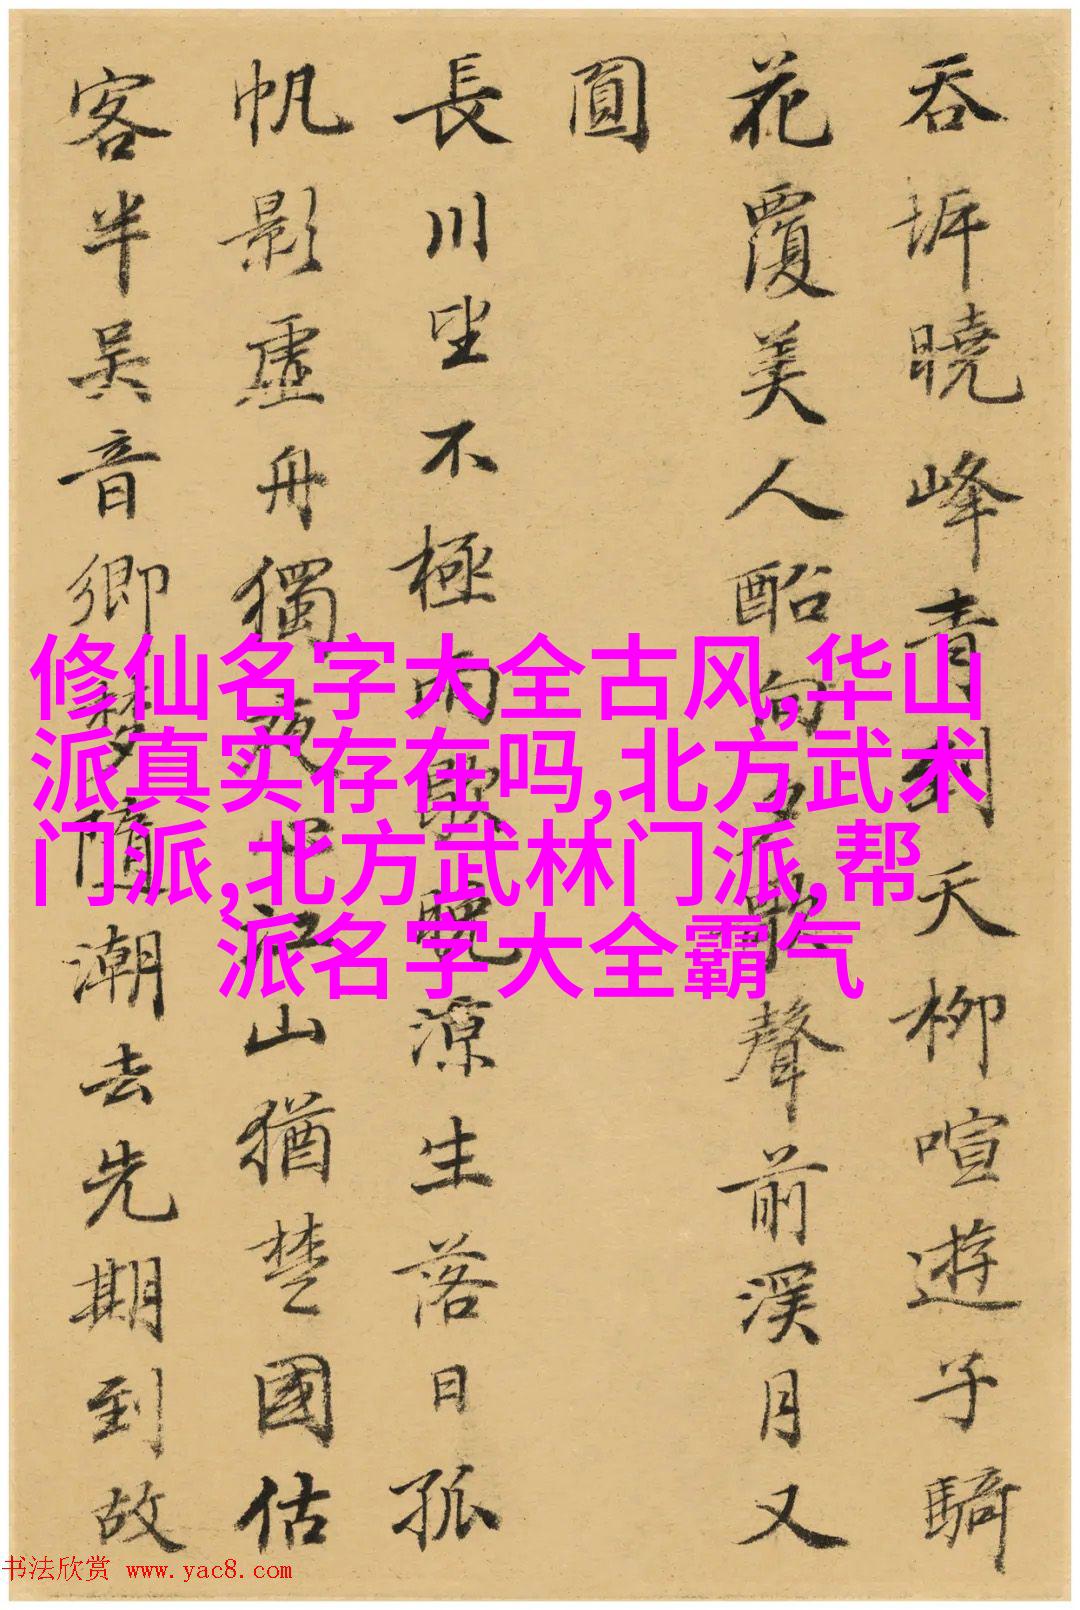 吞坼曉峰青到天柳喧遊子騎
花覆美人船向夕歌聲前溪月又
圓
長川坐不極雨歇晚涼生落日孤
帆影虛舟獨夜情江山猶楚國估
客半吳音鄉夢隨潮去先期到故
修仙名字大全古风,华山
派真实存在吗,北方武术
门派,北方武林门派,帮
派名字大全霸气
书法欣赏 www.yac8.com